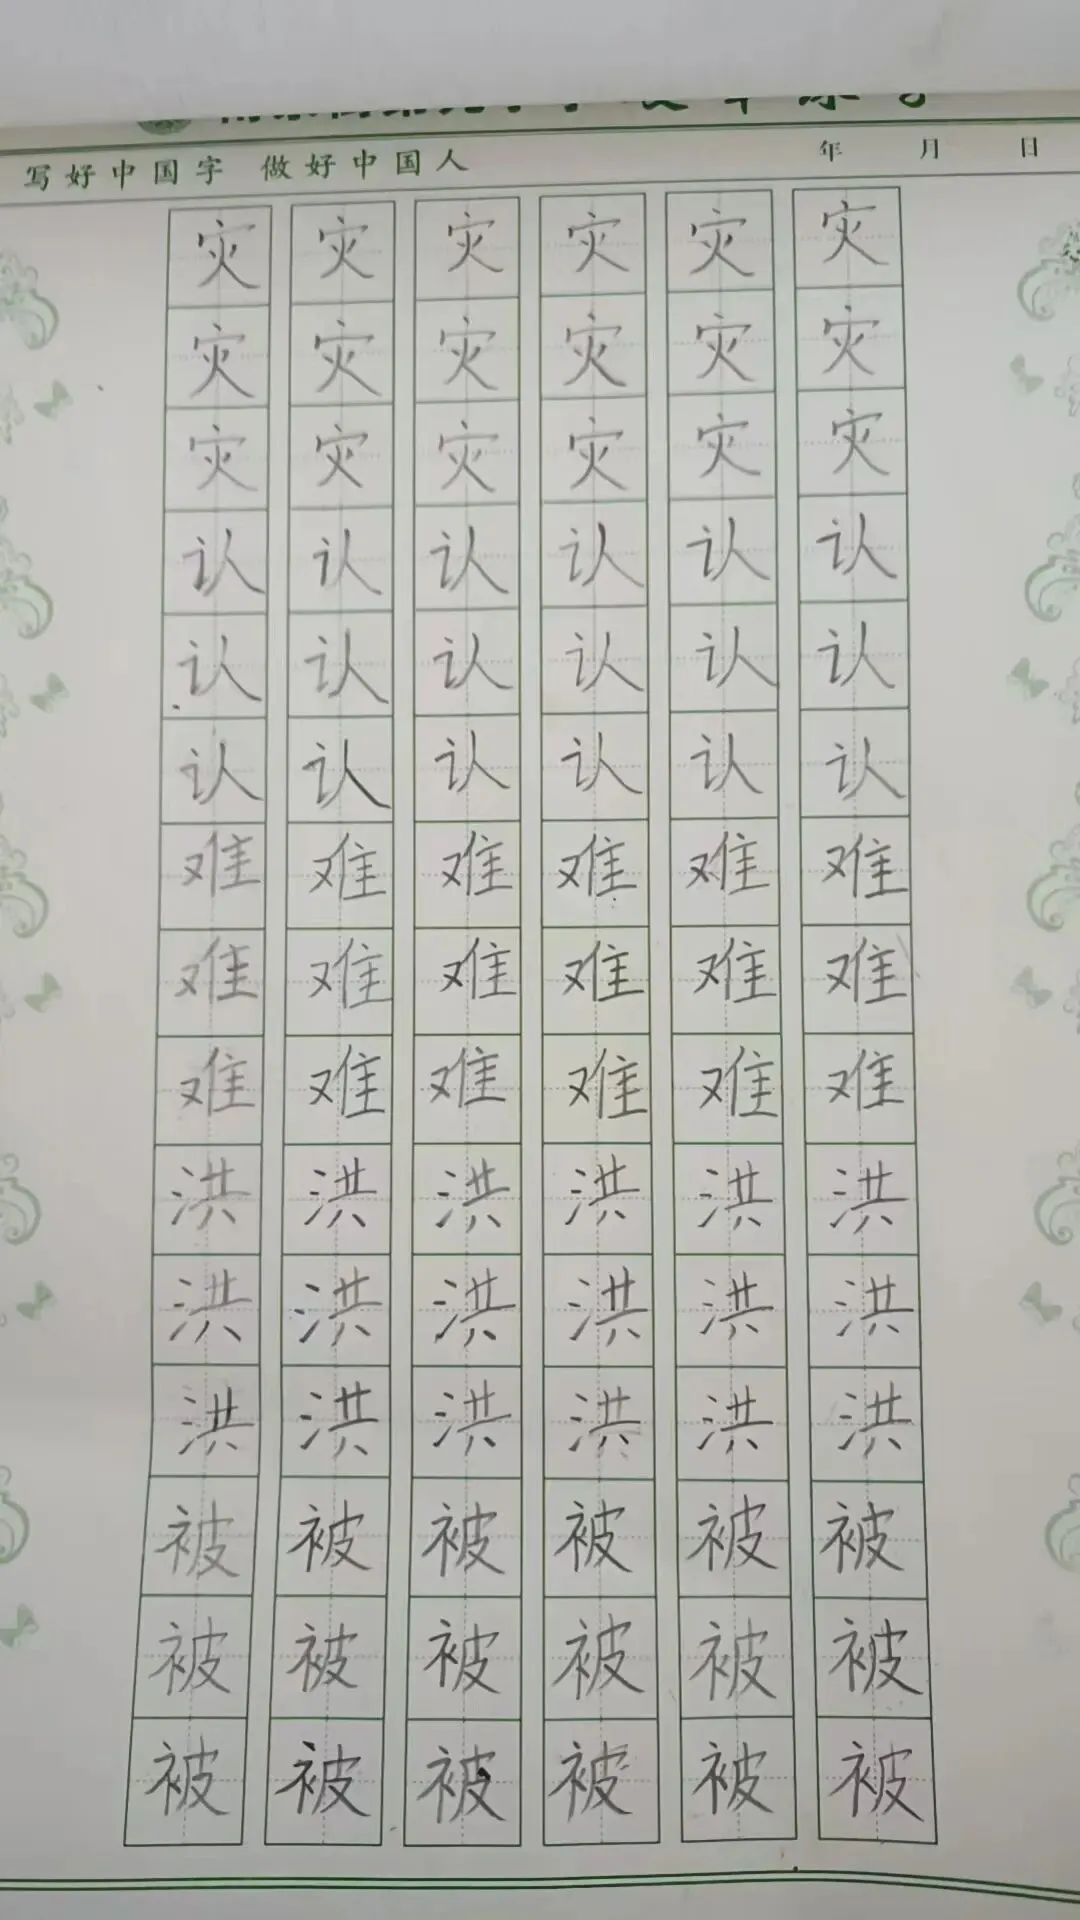 写好中国字 做好中国人 年 月 日
灾 灾 灾 灾 灾 灾
灾 灾 灾 灾 灾 灾
灾 灾 灾 灾 灾 灾
认 认 认 认 认 认
认 认 认 认 认 认
认 认 认 认 认 认
难 难 难 难 难 难
难 难 难 难 难 难
难 难 难 难 难 难
洪 洪 洪 洪 洪 洪
洪 洪 洪 洪 洪 洪
洪 洪 洪 洪 洪 洪
被 被 被 被 被 被
被 被 被 被 被 被
被 被 被 被 被 被